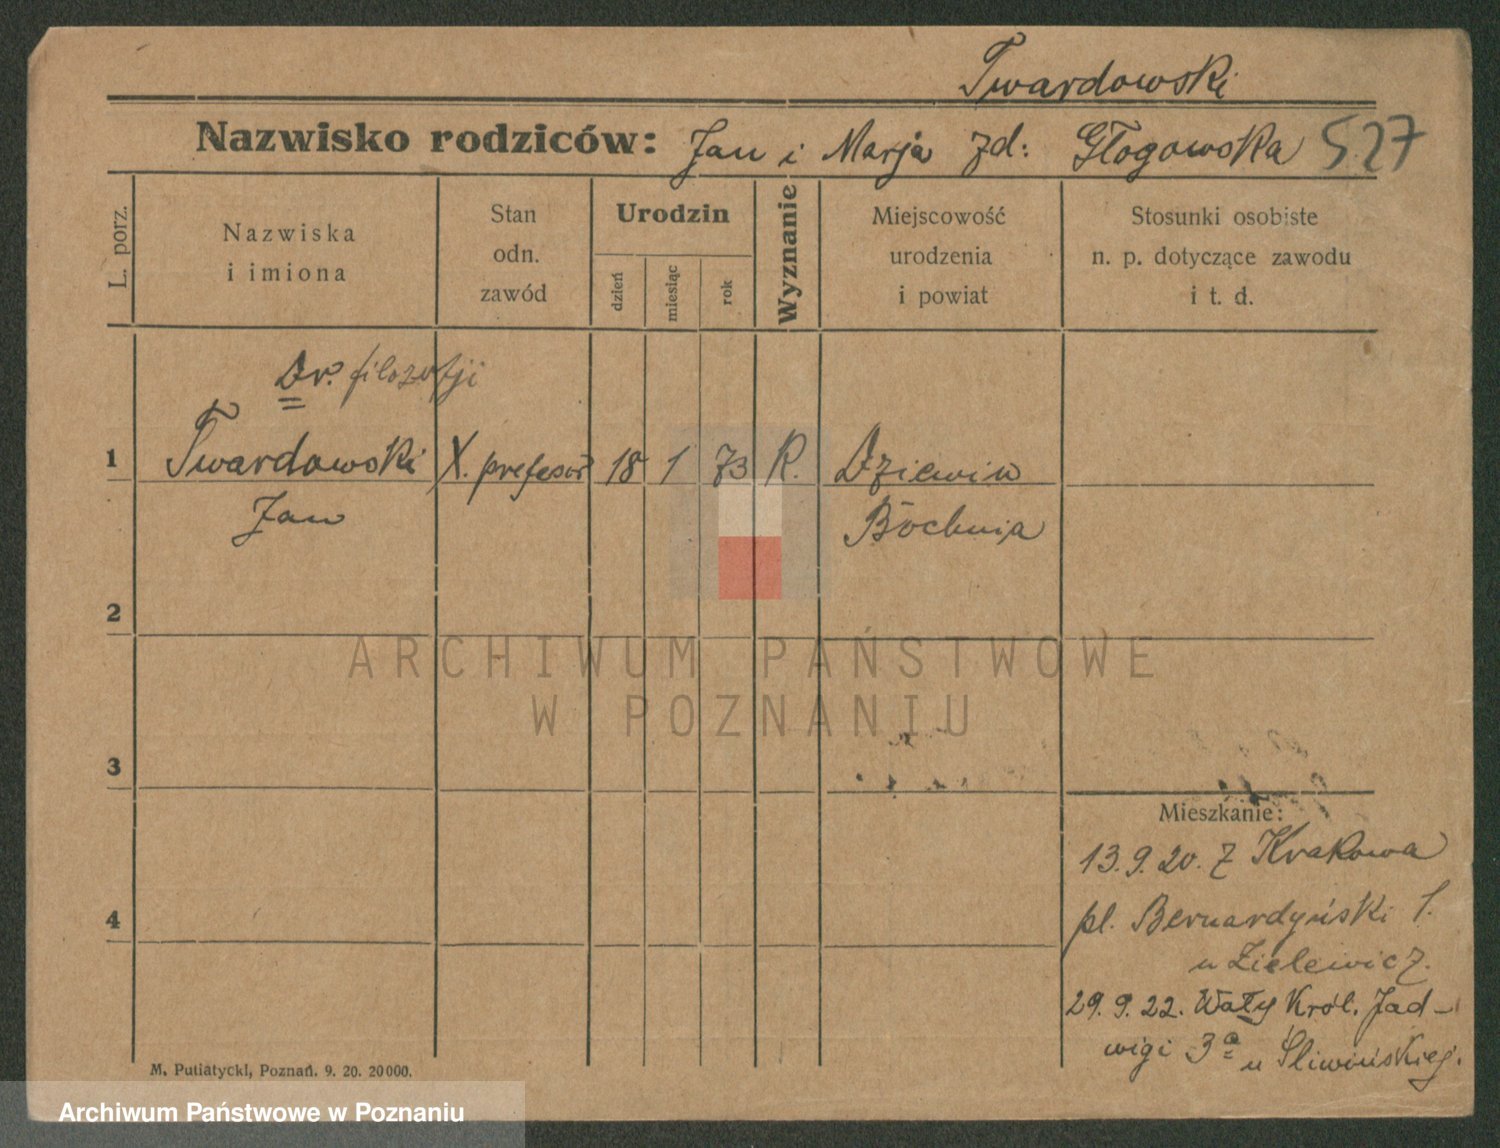 Twardowski
Nazwisko rodziców: Jan i Marja zd: Głogowska 527
L. porz.
Nazwiska
i imiona
Stan
odn.
zawód
Urodzin
dzień
miesiąc
rok
Wyznanie
Miejscowość
urodzenia
i powiat
Stosunki osobiste
n. p. dotyczące zawodu
i t. d.
Dr. filozofji
1 Twardowski X. profesor 18 1 73 R. Dziewin
Jan Bochnia
2
3
4
Mieszkanie:
13.9.20. z Krakowa
pl. Bernardyński 1.
u Zielewicz.
29.9.22. Wały Król. Jad-
wigi 3a u Śliwińskieg.
M. Putiatycki, Poznań. 9. 20. 20000.
ARCHIWUM PAŃSTWOWE
W POZNANIU
Archiwum Państwowe w Poznaniu